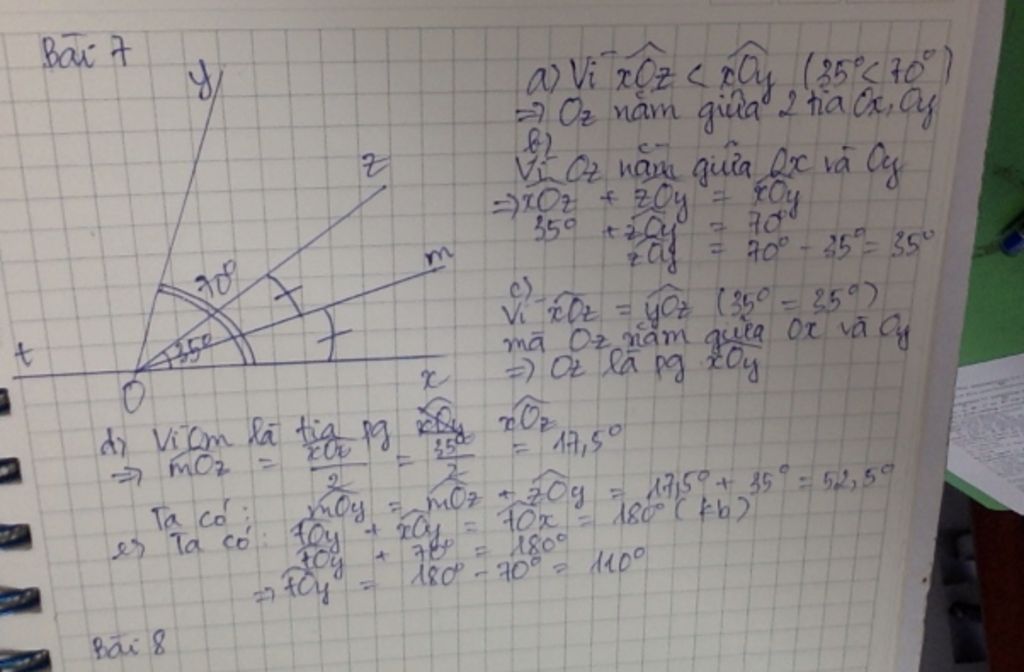 Bài 7
y
z
m
70°
35°
t
O
x
a) Vì xOz < xOy (35° < 70°)
=> Oz nằm giữa 2 tia Ox, Oy
b)
Vì Oz nằm giữa Ox và Oy
=> xOz + zOy = xOy
35° + zOy = 70°
zOy = 70° - 35° = 35°
c)
Vì xOz = yOz (35° = 35°)
mà Oz nằm giữa Ox và Oy
=> Oz là pg xOy
d) Vì Om là tia pg xOy xOz
=> mOz = xOz/2 = 35°/2 = 17,5°
Ta có: mOy = mOz + zOy = 17,5° + 35° = 52,5°
e) Ta có: tOy + xOy = tOx = 180° (kb)
tOy + 70° = 180°
=> tOy = 180° - 70° = 110°
Bài 8